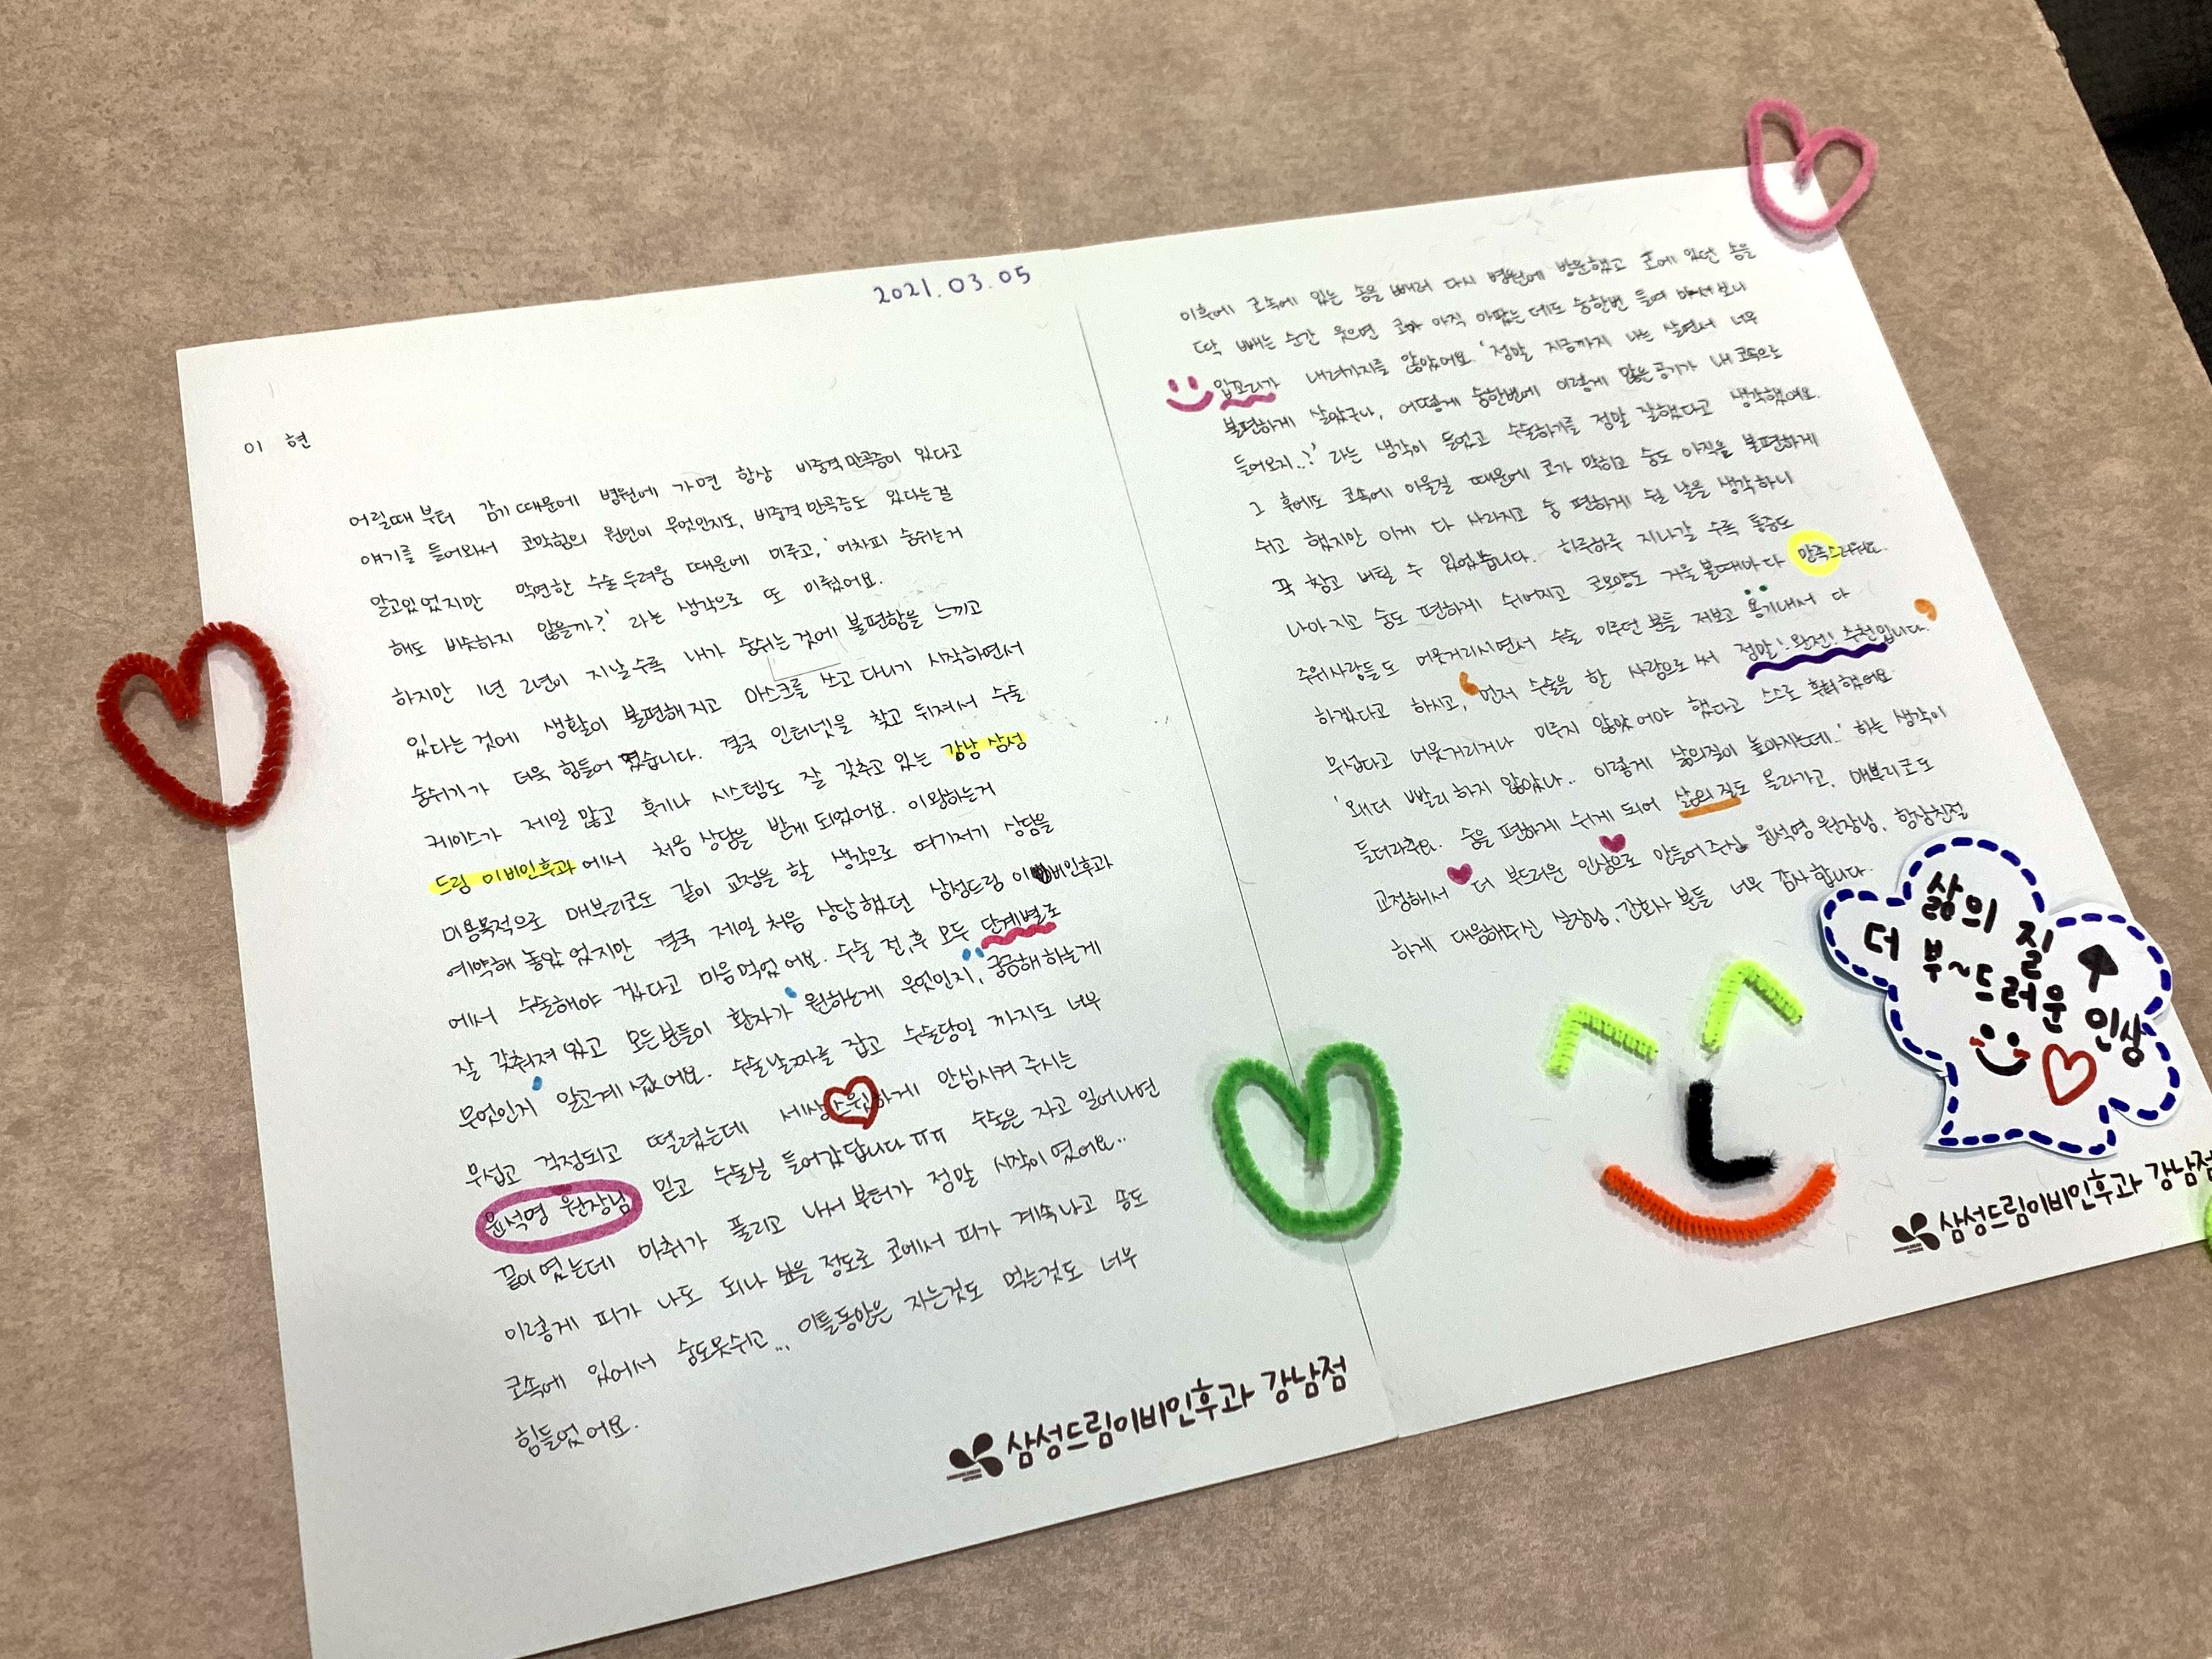 2021.03.05
이 현
어릴때 부터 감기 때문에 병원에 가면 항상 비중격만곡증이 있다고
얘기를 들어와서 코막힘의 원인이 무엇인지도, 비중격만곡증도 있다는걸
알고있었지만 막연한 수술두려움 때문에 미루고, '어차피 숨쉬는거
해도 비슷하지 않을까?' 라는 생각으로 또 미뤘어요.
하지만 1년 2년이 지날수록 내가 숨쉬는 것에 불편함을 느끼고
있다는 것에 생활이 불편해지고 마스크를 쓰고 다니기 시작하면서
숨쉬기가 더욱 힘들어 졌습니다. 결국 인터넷을 찾고 뒤져서 수술
케이스가 제일 많고 후기나 시스템도 잘 갖추고 있는 강남 삼성
드림 이비인후과에서 처음 상담을 받게 되었어요. 이왕하는거
미용목적으로 매부리코도 같이 교정을 할 생각으로 여기저기 상담을
예약해 놓았었지만 결국 제일 처음 상담했던 삼성드림 이비인후과
에서 수술해야 겠다고 마음먹었어요. 수술 전,후 모두 단계별로
잘 갖춰져 있고 모든분들이 환자가 원하는게 무엇인지, 궁금해하는게
무엇인지 알고계셨어요. 수술날짜를 잡고 수술당일 까지도 너무
무섭고 걱정되고 떨렸는데 세상스윗하게 안심시켜 주시는
윤석영 원장님 믿고 수술실 들어갔답니다ㅠㅠ 수술은 자고 일어나면
끝이였는데 마취가 풀리고 나서부터가 정말 시작이였어요..
이렇게 피가 나도 되나 싶을 정도로 코에서 피가 계속나고 솜도
코속에 있어서 숨도못쉬고... 이틀동안은 자는것도 먹는것도 너무
힘들었어요.
삼성드림이비인후과 강남점
이후에 코속에 있는 솜을 빼러 다시 병원에 방문했고 코에 있던 솜을
딱 빼는 순간 웃으면 코가 아직 아팠는데도 숨한번 들여 마셔보니
입꼬리가 내려가지를 않았어요. '정말 지금까지 나는 살면서 너무
불편하게 살았구나, 어떻게 숨한번에 이렇게 많은 공기가 내 코속으로
들어오지..?' 라는 생각이 들었고 수술하기를 정말 잘했다고 생각했어요.
그 후에도 코속에 이물질 때문에 코가 막히고 숨도 아직을 불편하게
쉬고 했지만 이게 다 사라지고 숨 편하게 쉴 날을 생각하니
꾹 참고 버틸 수 있었습니다. 하루하루 지나갈 수록 통증도
나아지고 숨도 편하게 쉬어지고 코모양도 거울볼때마다 만족스러워요.
주위사람들도 머뭇거리시면서 수술 미루던 분들 저보고 용기내서 다
하겠다고 하시고, 먼저 수술을 한 사람으로써 정말! 완전! 추천입니다.
무섭다고 머뭇거리거나 미루지 않았어야 했다고 스스로 후회했어요
'왜더 빨리하지 않았나.. 이렇게 삶의질이 높아지는데..' 하는 생각이
들더라구요. 숨을 편하게 쉬게 되어 삶의 질도 올라가고, 매부리코도
교정해서 더 부드러운 인상으로 만들어주신 윤석영 원장님, 항상친절
하게 대응해주신 실장님, 간호사 분들 너무 감사합니다.
삶의 질 ↑
더 부~드러운 인상
삼성드림이비인후과 강남점